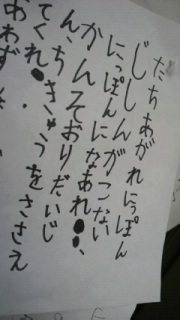 たちあがれにっぽん
じしんがこない
にっぽんになあれ!!、
かんそおりだいじ
ん、ちきゅうをささえ
てくれ!